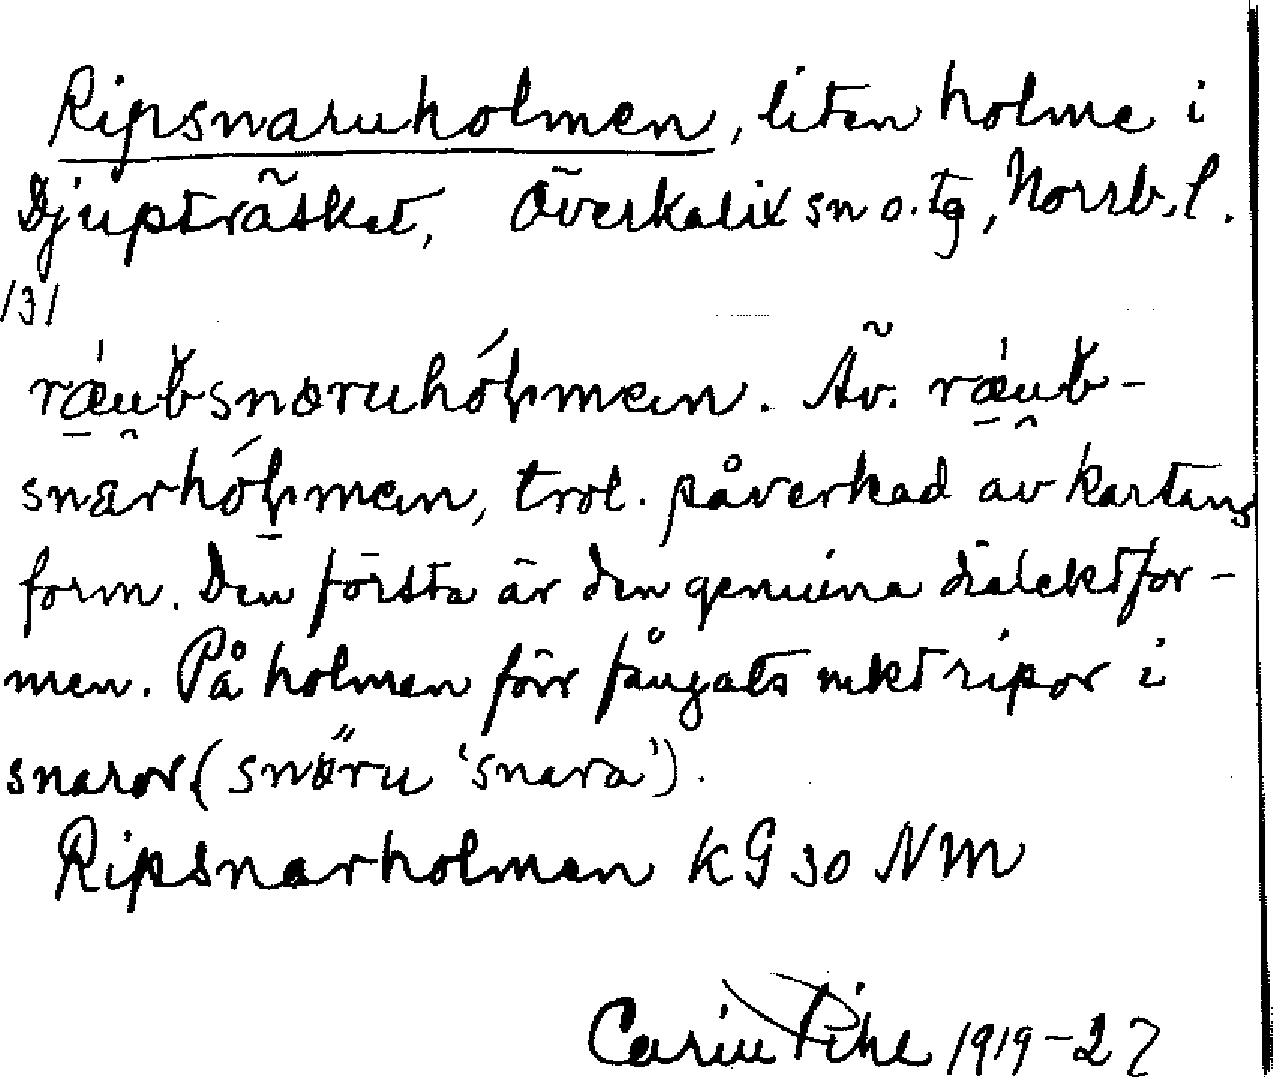 Ripsnaruholmen, liten holme i
Djupträsket, Överkalix sn o. tg, Norrb. l.
131
ráubsnaruhólmen. Äv. ráub-
snarhólmen, trol. påverkad av kartans
form. Den första är den genuina dialektfor-
men. På holmen förr fångats mkt ripor i
snaror (snöru 'snara').
Ripsnarholmen KG 30 NM
Carin Pihl 1919-27